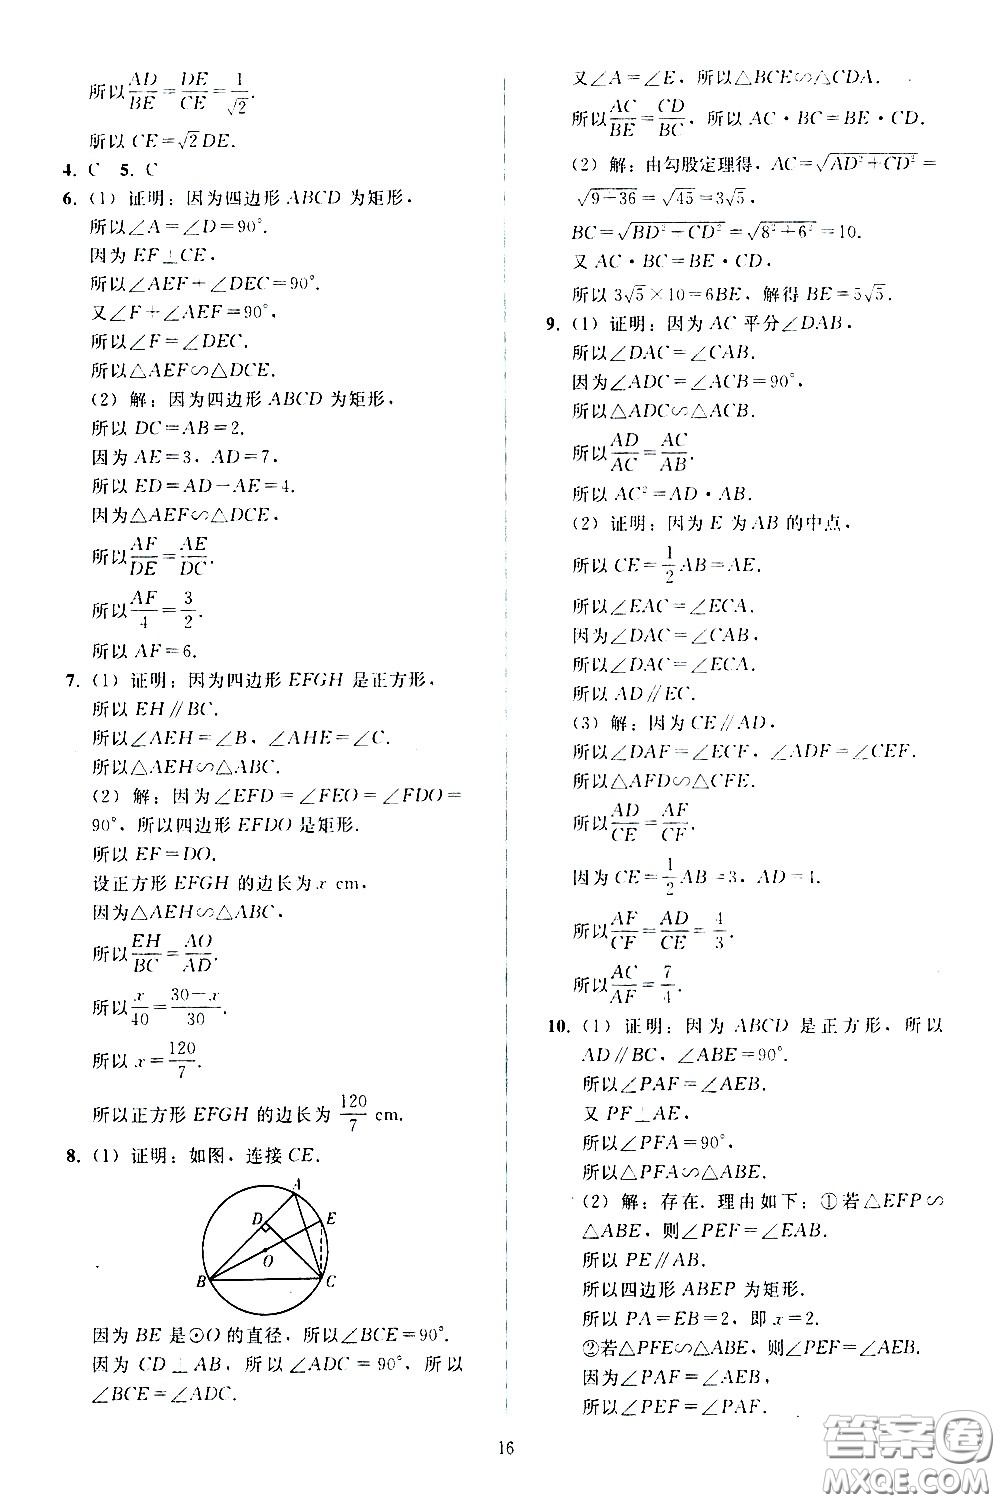 所以AD/BE=DE/CE=1/√2.
所以 CE=√2DE.
4. C 5. C
6. (1) 证明：因为四边形 ABCD 为矩形，
所以∠A=∠D=90°.
因为 EF⊥CE，
所以∠AEF+∠DEC=90°.
又∠F+∠AEF=90°，
所以∠F=∠DEC.
所以△AEF∽△DCE.
(2) 解：因为四边形 ABCD 为矩形，
所以 DC=AB=2.
因为 AE=3，AD=7，
所以 ED=AD−AE=4.
因为△AEF∽△DCE，
所以AF/DE=AE/DC.
所以AF/4=3/2.
所以 AF=6.
7. (1) 证明：因为四边形 EFGH 是正方形，
所以 EH∥BC.
所以∠AEH=∠B，∠AHE=∠C.
所以△AEH∽△ABC.
(2) 解：因为∠EFD=∠FEO=∠FDO=
90°，所以四边形 EFDO 是矩形.
所以 EF=DO.
设正方形 EFGH 的边长为 x cm，
因为△AEH∽△ABC，
所以EH/BC=AO/AD.
所以x/40=30−x/30.
所以 x=120/7.
所以正方形 EFGH 的边长为 120/7 cm.
8. (1) 证明：如图，连接 CE.
A
D
E
O
B
C
因为 BE 是⊙O 的直径，所以∠BCE=90°.
因为 CD⊥AB，所以∠ADC=90°，所以
∠BCE=∠ADC.
又∠A=∠E，所以△BCE∽△CDA.
所以AC/BE=CD/BC，所以 AC·BC=BE·CD.
(2) 解：由勾股定理得，AC=√AD²+CD²=
√9+36=√45=3√5，
BC=√BD²+CD²=√8²+6²=10.
又 AC·BC=BE·CD，
所以 3√5×10=6BE，解得 BE=5√5.
9. (1) 证明：因为 AC 平分∠DAB，
所以∠DAC=∠CAB.
因为∠ADC=∠ACB=90°，
所以△ADC∽△ACB.
所以AD/AC=AC/AB.
所以 AC²=AD·AB.
(2) 证明：因为 E 为 AB 的中点，
所以 CE=1/2AB=AE.
所以∠EAC=∠ECA.
因为∠DAC=∠CAB，
所以∠DAC=∠ECA.
所以 AD∥EC.
(3) 解：因为 CE∥AD，
所以∠DAF=∠ECF，∠ADF=∠CEF.
所以△AFD∽△CFE.
所以AD/CE=AF/CF.
因为 CE=1/2AB=3，AD=4，
所以AF/CF=AD/CE=4/3.
所以AC/AF=7/4.
10. (1) 证明：因为 ABCD 是正方形，所以
AD∥BC，∠ABE=90°.
所以∠PAF=∠AEB.
又 PF⊥AE，
所以∠PFA=90°.
所以△PFA∽△ABE.
(2) 解：存在. 理由如下：①若△EFP∽
△ABE，则∠PEF=∠EAB.
所以 PE∥AB.
所以四边形 ABEP 为矩形.
所以 PA=EB=2，即 x=2.
②若△PFE∽△ABE，则∠PEF=∠AEB.
因为∠PAF=∠AEB，
所以∠PEF=∠PAF.
16
答案圈
MXQE.COM